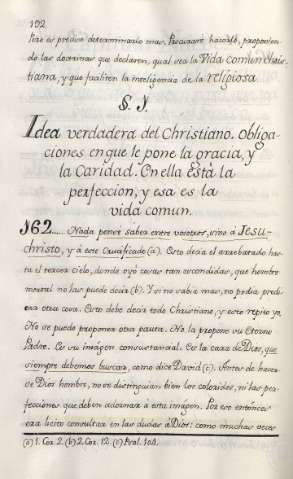 192
Pero es preciso determinarlo mas. Procuraré hacerlo, proponien-
do las doctrinas que declaren, qual sea la Vida comun Chris-
tiana, y que faciliten la inteligencia de la religiosa
§. I.
Idea verdadera del Christiano. Obliga-
ciones en que le pone la gracia, y
la Caridad. En ella Está la
perfeccion, y esa es la
vida comun.
162..... Nada pensé saber entre vosotros, sino á Jesu-
christo, y á este Crucificado (a). Esto decia el arrebatado has-
ta el tercer Cielo, donde oyó cosas tan escondidas, que hombre
mortal no las puede decir (b). Y si no sabia mas, no podia predi-
car otra cosa. Esto debe decir todo Christiano, y este repito yo.
No se puede proponer otra pauta. No la propone su Eterno
Padre. Es su imágen consustancial. Es la cara de Dios, que
siempre debemos buscar, como dice David (c). Antes de hacer-
se Dios hombre, no se distinguian bien los coloridos, ni las per-
fecciones que deben adornar á esta imágen. Por eso entónces
era licito consultar en las dudas á Dios: como muchas veces
(a) 1. Cor. 2. (b) 2. Cor. 12. (c) Psal. 104.